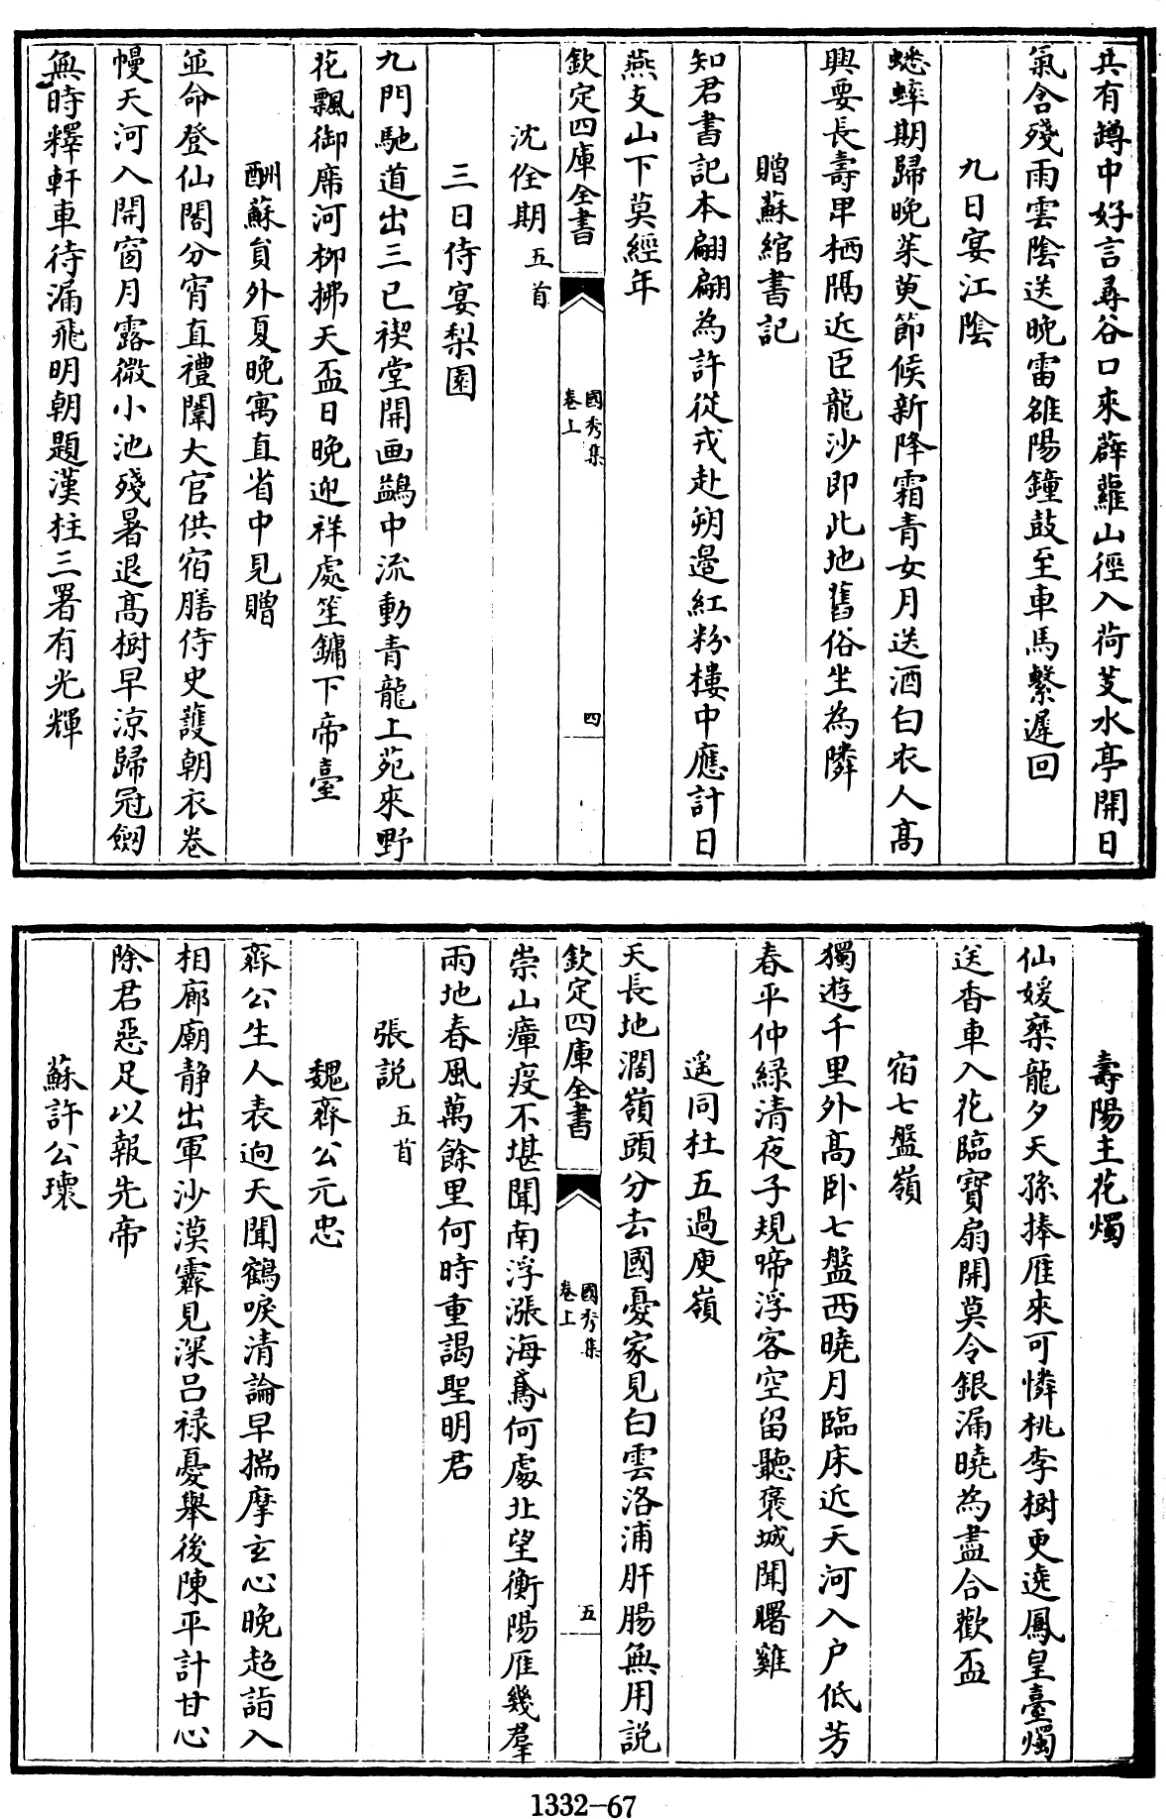 共有蹲中好言尋谷口來薜蘿山徑入荷芰水亭開日
氣含殘雨雲陰送晚雷雒陽鐘鼓至車馬繫遲回
九日宴江陰
蟋蟀期歸晚茱萸節候新降霜青女月送酒白衣人髙
興要長壽卑栖隅近臣龍沙即此地舊俗坐為隣
贈蘇綰書記
知君書記本翩翩為許從戎赴朔邉紅粉樓中應計日
燕支山下莫經年
欽定四庫全書
國秀集
卷上
四
沈佺期五首
三日侍宴梨園
九門馳道出三巳禊堂開画鷁中流動青龍上苑來野
花飄御席河柳拂天盃日晚迎祥處笙鏞下帝臺
酬蘇貟外夏晚寓直省中見贈
並命登仙閣分宵直禮闈大官供宿膳侍史䕶朝衣卷
幔天河入開窗月露微小池殘暑退髙樹早涼歸冠劔
無時釋軒車待漏飛明朝題漢柱三署有光輝
壽陽主花燭
仙媛乘龍夕天孫捧雁來可憐桃李樹更遶鳳皇臺燭
送香車入花臨寳扇開莫令銀漏曉為盡合歡盃
宿七盤嶺
獨遊千里外髙卧七盤西曉月臨床近天河入户低芳
春平仲緑清夜子規啼浮客空留聽褒城聞曙雞
遥同杜五過庾嶺
天長地濶嶺頭分去國憂家見白雲洛浦肝腸無用説
崇山瘴疫不堪聞南浮漲海鳶何處北望衡陽雁幾羣
兩地春風萬餘里何時重謁聖明君
欽定四庫全書
國秀集
卷上
五
張説五首
魏齊公元忠
齊公生人表迥天聞鶴唳清論早揣摩玄心晚超詣入
相廊廟静出軍沙漠霽見深吕禄憂舉後陳平計甘心
除君惡足以報先帝
蘇許公瓌
1332-67